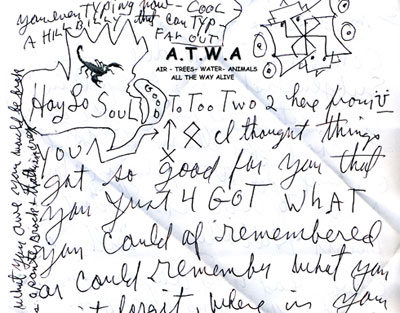 you even TYPING now - COOL
A HILL BILLY that can TYP
FAR OUT
A.T.W.A
AIR - TREES- WATER- ANIMALS
ALL THE WAY ALIVE
Hay So Soul
To Too Two 2 here from
you I thought things
got so good for you that
you Just 4 GOT WHAT
you could of remembered
or could remember what you
forgit, where in your
what you owe you